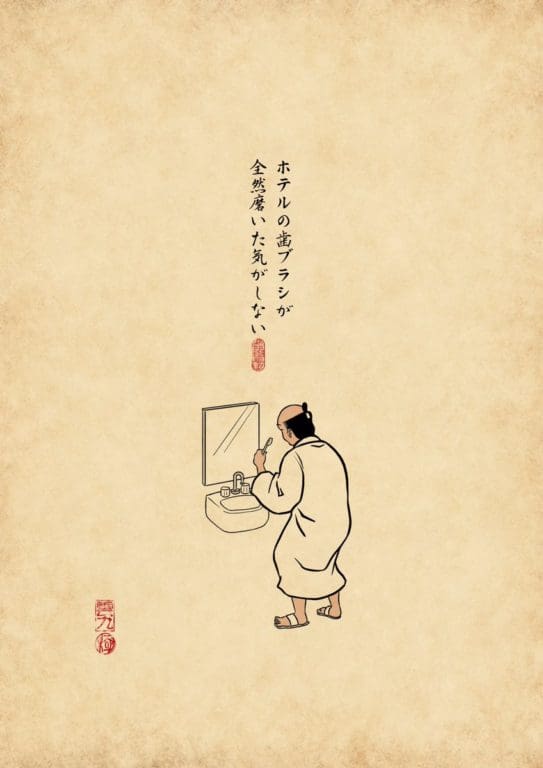 ホテルの歯ブラシが
全然磨いた気がしない